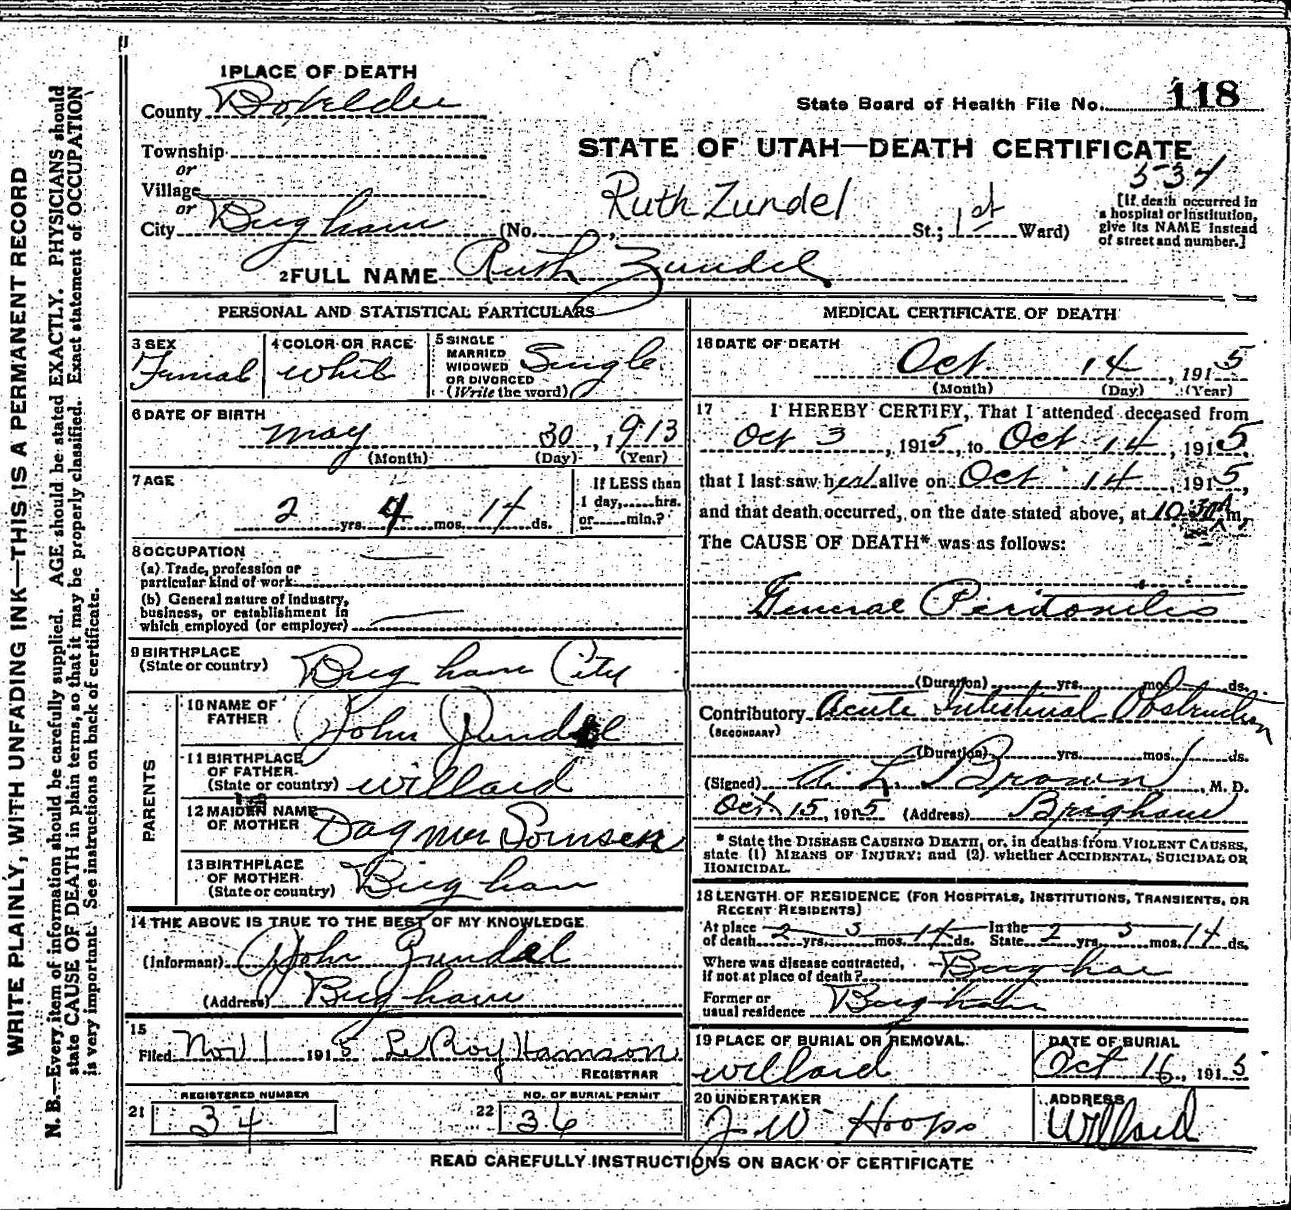 WRITE PLAINLY, WITH UNFADING INK—THIS IS A PERMANENT RECORD
N. B.—Every item of information should be carefully supplied. AGE should be stated EXACTLY. PHYSICIANS should
state CAUSE OF DEATH in plain terms, so that it may be properly classified. Exact statement of OCCUPATION
is very important. See instructions on back of certificate.
1 PLACE OF DEATH
County Boxelder
State Board of Health File No. 118
Township
or
Village
or
City Brigham
STATE OF UTAH—DEATH CERTIFICATE
534
Ruth Zundel
(No. , St.; 1st Ward)
[If death occurred in
a hospital or institution,
give its NAME instead
of street and number.]
2 FULL NAME Ruth Zundel
PERSONAL AND STATISTICAL PARTICULARS
3 SEX
Femal
4 COLOR OR RACE
whit
5 SINGLE
MARRIED
WIDOWED
OR DIVORCED
(Write the word)
Single
6 DATE OF BIRTH
may 30, 1913
(Month) (Day) (Year)
7 AGE
2 yrs. 4 mos. 14 ds.
If LESS than
1 day, hrs.
or min.?
8 OCCUPATION
(a) Trade, profession or
particular kind of work
(b) General nature of industry,
business, or establishment in
which employed (or employer)
9 BIRTHPLACE
(State or country)
Brigham City
PARENTS
10 NAME OF
FATHER
John Zundel
11 BIRTHPLACE
OF FATHER
(State or country)
willard
12 MAIDEN NAME
OF MOTHER
Dagmer
13 BIRTHPLACE
OF MOTHER
(State or country)
Brigham
14 THE ABOVE IS TRUE TO THE BEST OF MY KNOWLEDGE
(Informant) John Zundel
(Address) Brigham
15
Filed Nov 1 1915 LeRoy Harrison
REGISTRAR
21 REGISTERED NUMBER
34
22 NO. OF BURIAL PERMIT
36
MEDICAL CERTIFICATE OF DEATH
16 DATE OF DEATH
Oct 14, 1915
(Month) (Day) (Year)
17 I HEREBY CERTIFY, That I attended deceased from
Oct 3, 1915, to Oct 14, 1915,
that I last saw her alive on Oct 14, 1915,
and that death occurred, on the date stated above, at 10:30 A m.
The CAUSE OF DEATH* was as follows:
General Peritonitis
(Duration) yrs. mos. ds.
Contributory Acute Intestinal Obstruction
(SECONDARY)
(Duration) yrs. mos. ds.
(Signed) A. L. Brown, M. D.
Oct 15, 1915 (Address) Brigham
* State the DISEASE CAUSING DEATH, or, in deaths from VIOLENT CAUSES,
state (1) MEANS OF INJURY; and (2) whether ACCIDENTAL, SUICIDAL OR
HOMICIDAL.
18 LENGTH OF RESIDENCE (FOR HOSPITALS, INSTITUTIONS, TRANSIENTS, OR
RECENT RESIDENTS)
At place In the
of death 2 yrs. 5 mos. 14 ds. State 2 yrs. 5 mos. 14 ds.
Where was disease contracted,
if not at place of death? Brigham
Former or
usual residence Brigham
19 PLACE OF BURIAL OR REMOVAL
willard
DATE OF BURIAL
Oct 16, 1915
20 UNDERTAKER
J W Hoops
ADDRESS
Willard
READ CAREFULLY INSTRUCTIONS ON BACK OF CERTIFICATE